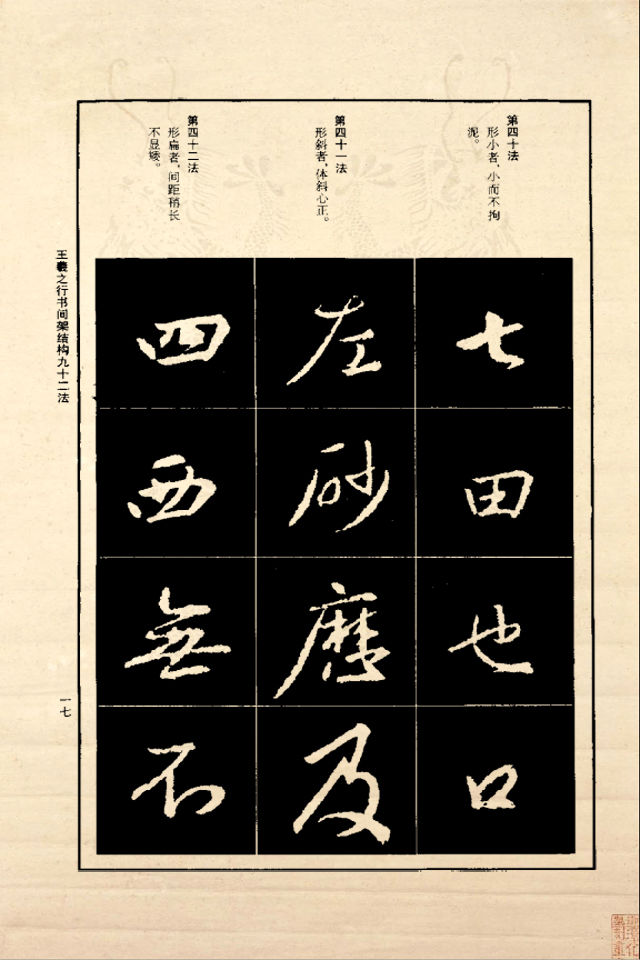 第四十法
形小者，小而不拘
泥。
第四十一法
形斜者，体斜心正。
第四十二法
形扁者，间距稍长
不显矮。
七
田
也
口
左
砂
历
及
四
西
無
不
王羲之行书间架结构九十二法
一七